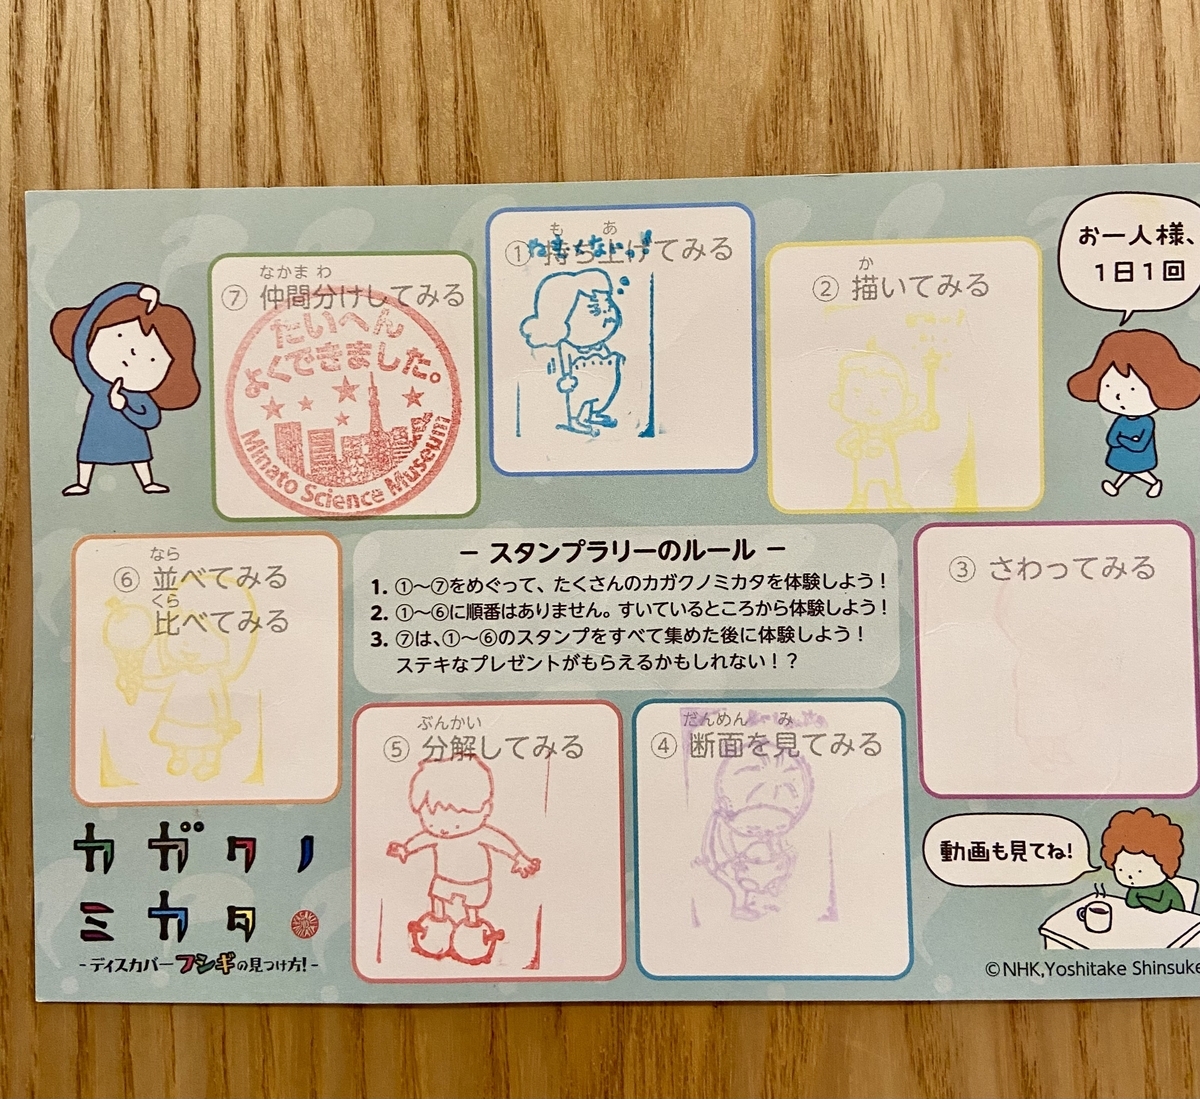 も あ
① 持ち上げてみる
か
② 描いてみる
お一人様、
1日1回
なかま わ
⑦ 仲間分けしてみる
たいへん
よくできました。
Minato Science Museum
なら
⑥ 並べてみる
くら
比べてみる
− スタンプラリーのルール −
1. ①〜⑦をめぐって、たくさんのカガクノミカタを体験しよう！
2. ①〜⑥に順番はありません。すいているところから体験しよう！
3. ⑦は、①〜⑥のスタンプをすべて集めた後に体験しよう！
ステキなプレゼントがもらえるかもしれない！？
③ さわってみる
ぶんかい
⑤ 分解してみる
だんめん み
④ 断面を見てみる
カガクノ
ミカタ
-ディスカバーフシギの見つけ方!-
動画も見てね!
©NHK,Yoshitake Shinsuke